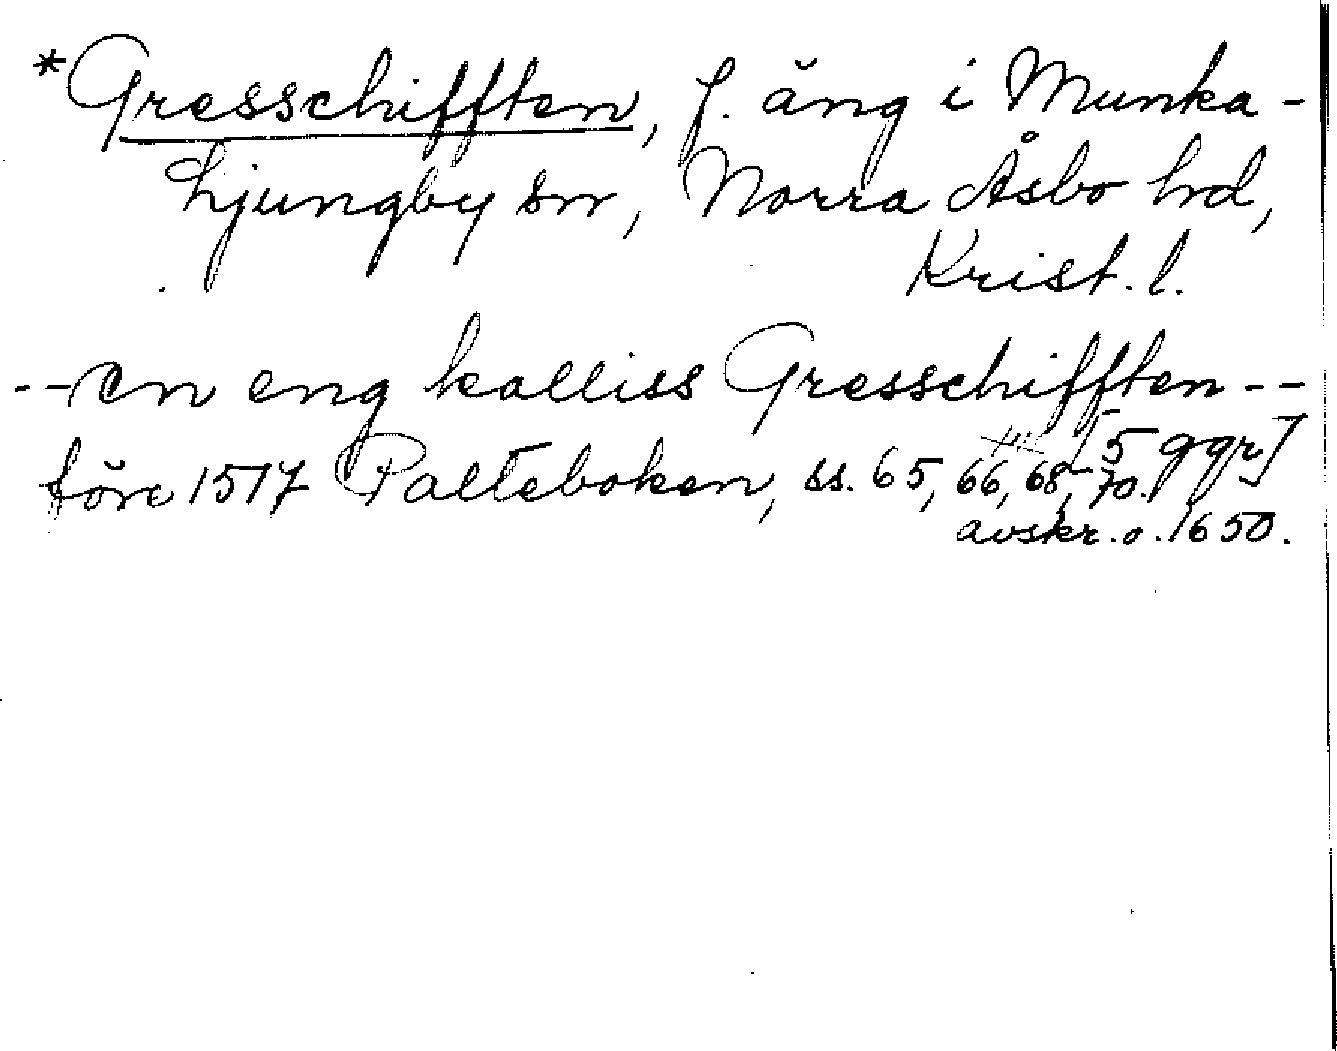 *Gresschifften, f. äng i Munka-
Ljungby sn, Norra Åsbo hd,
Krist. l.
-- en eng kalliss Gresschifften --
[5 ggr]
före 1517 Palteboken, ss. 65, 66, 68, 70.
avskr. o. 1650.